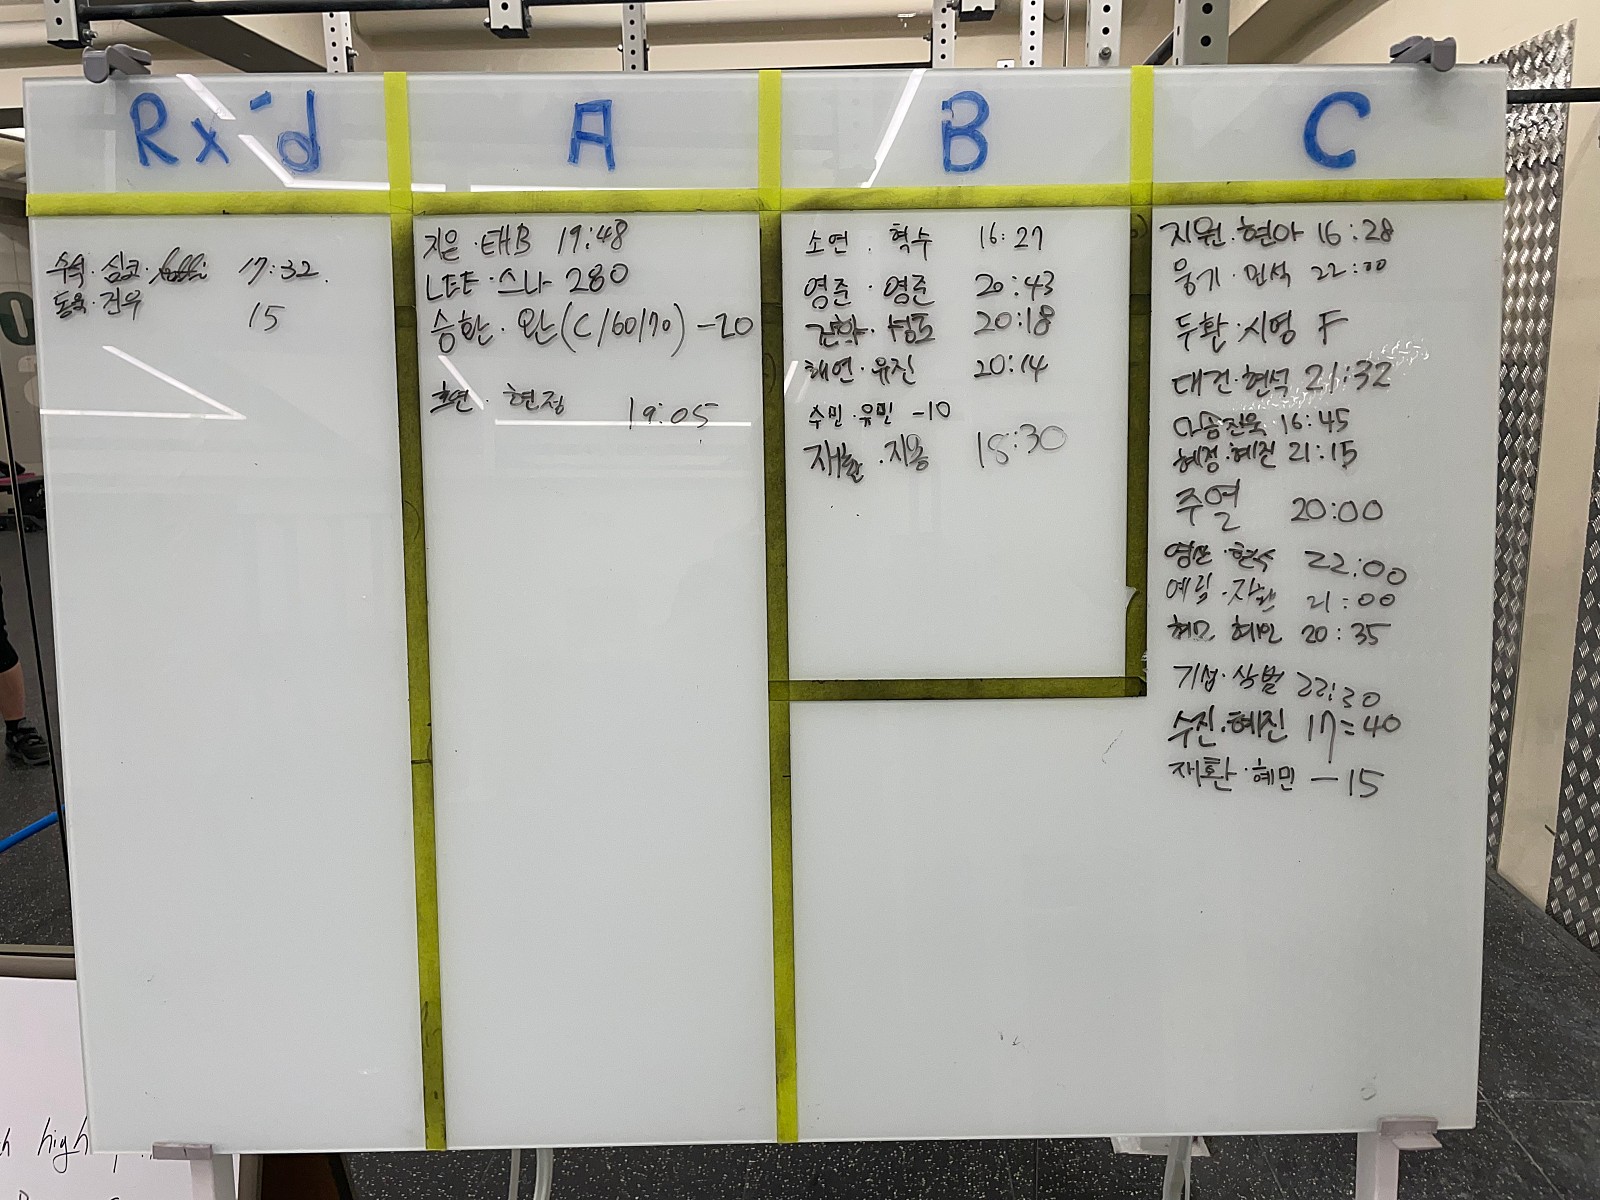 Rx'd
수숙·심코· 17:32.
동욱·건우 15
A
지은·EHB 19:48
LEE·스나 280
승한·완(C/60/70) -20
현정 19:05
B
소연·혁수 16:27
영준·영준 20:43
20:18
태연·유진 20:14
수민·유민 -10
지용 18:30
C
지원·현아 16:28
웅기·민석 22:00
두환·시영 F
대건·현석 21:32
16:45
혜정·혜진 21:15
주열 20:00
현수 22:00
예림 21:00
혜민 20:35
기섭·상범 22:30
수진·혜진 17:40
재환·혜민 -15
high